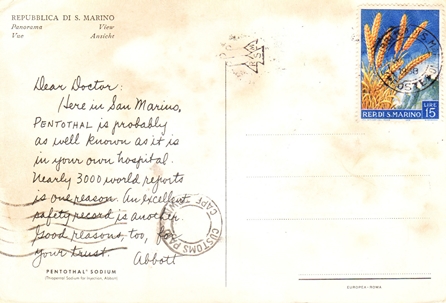 REPUBBLICA DI S. MARINO
Panorama View
Vue Ansicht
Dear Doctor:
Here in San Marino,
PENTOTHAL is probably
as well known as it is
in your own hospital.
Nearly 3000 world reports
is one reason. An excellent
safety record is another.
Good reasons, too, for
your trust.
Abbott
PENTOTHAL® SODIUM
(Thiopental Sodium for Injection, Abbott)
LIRE
15
REP. DI S. MARINO
CUSTOMS PAID
CAPE
EUROPEA - ROMA